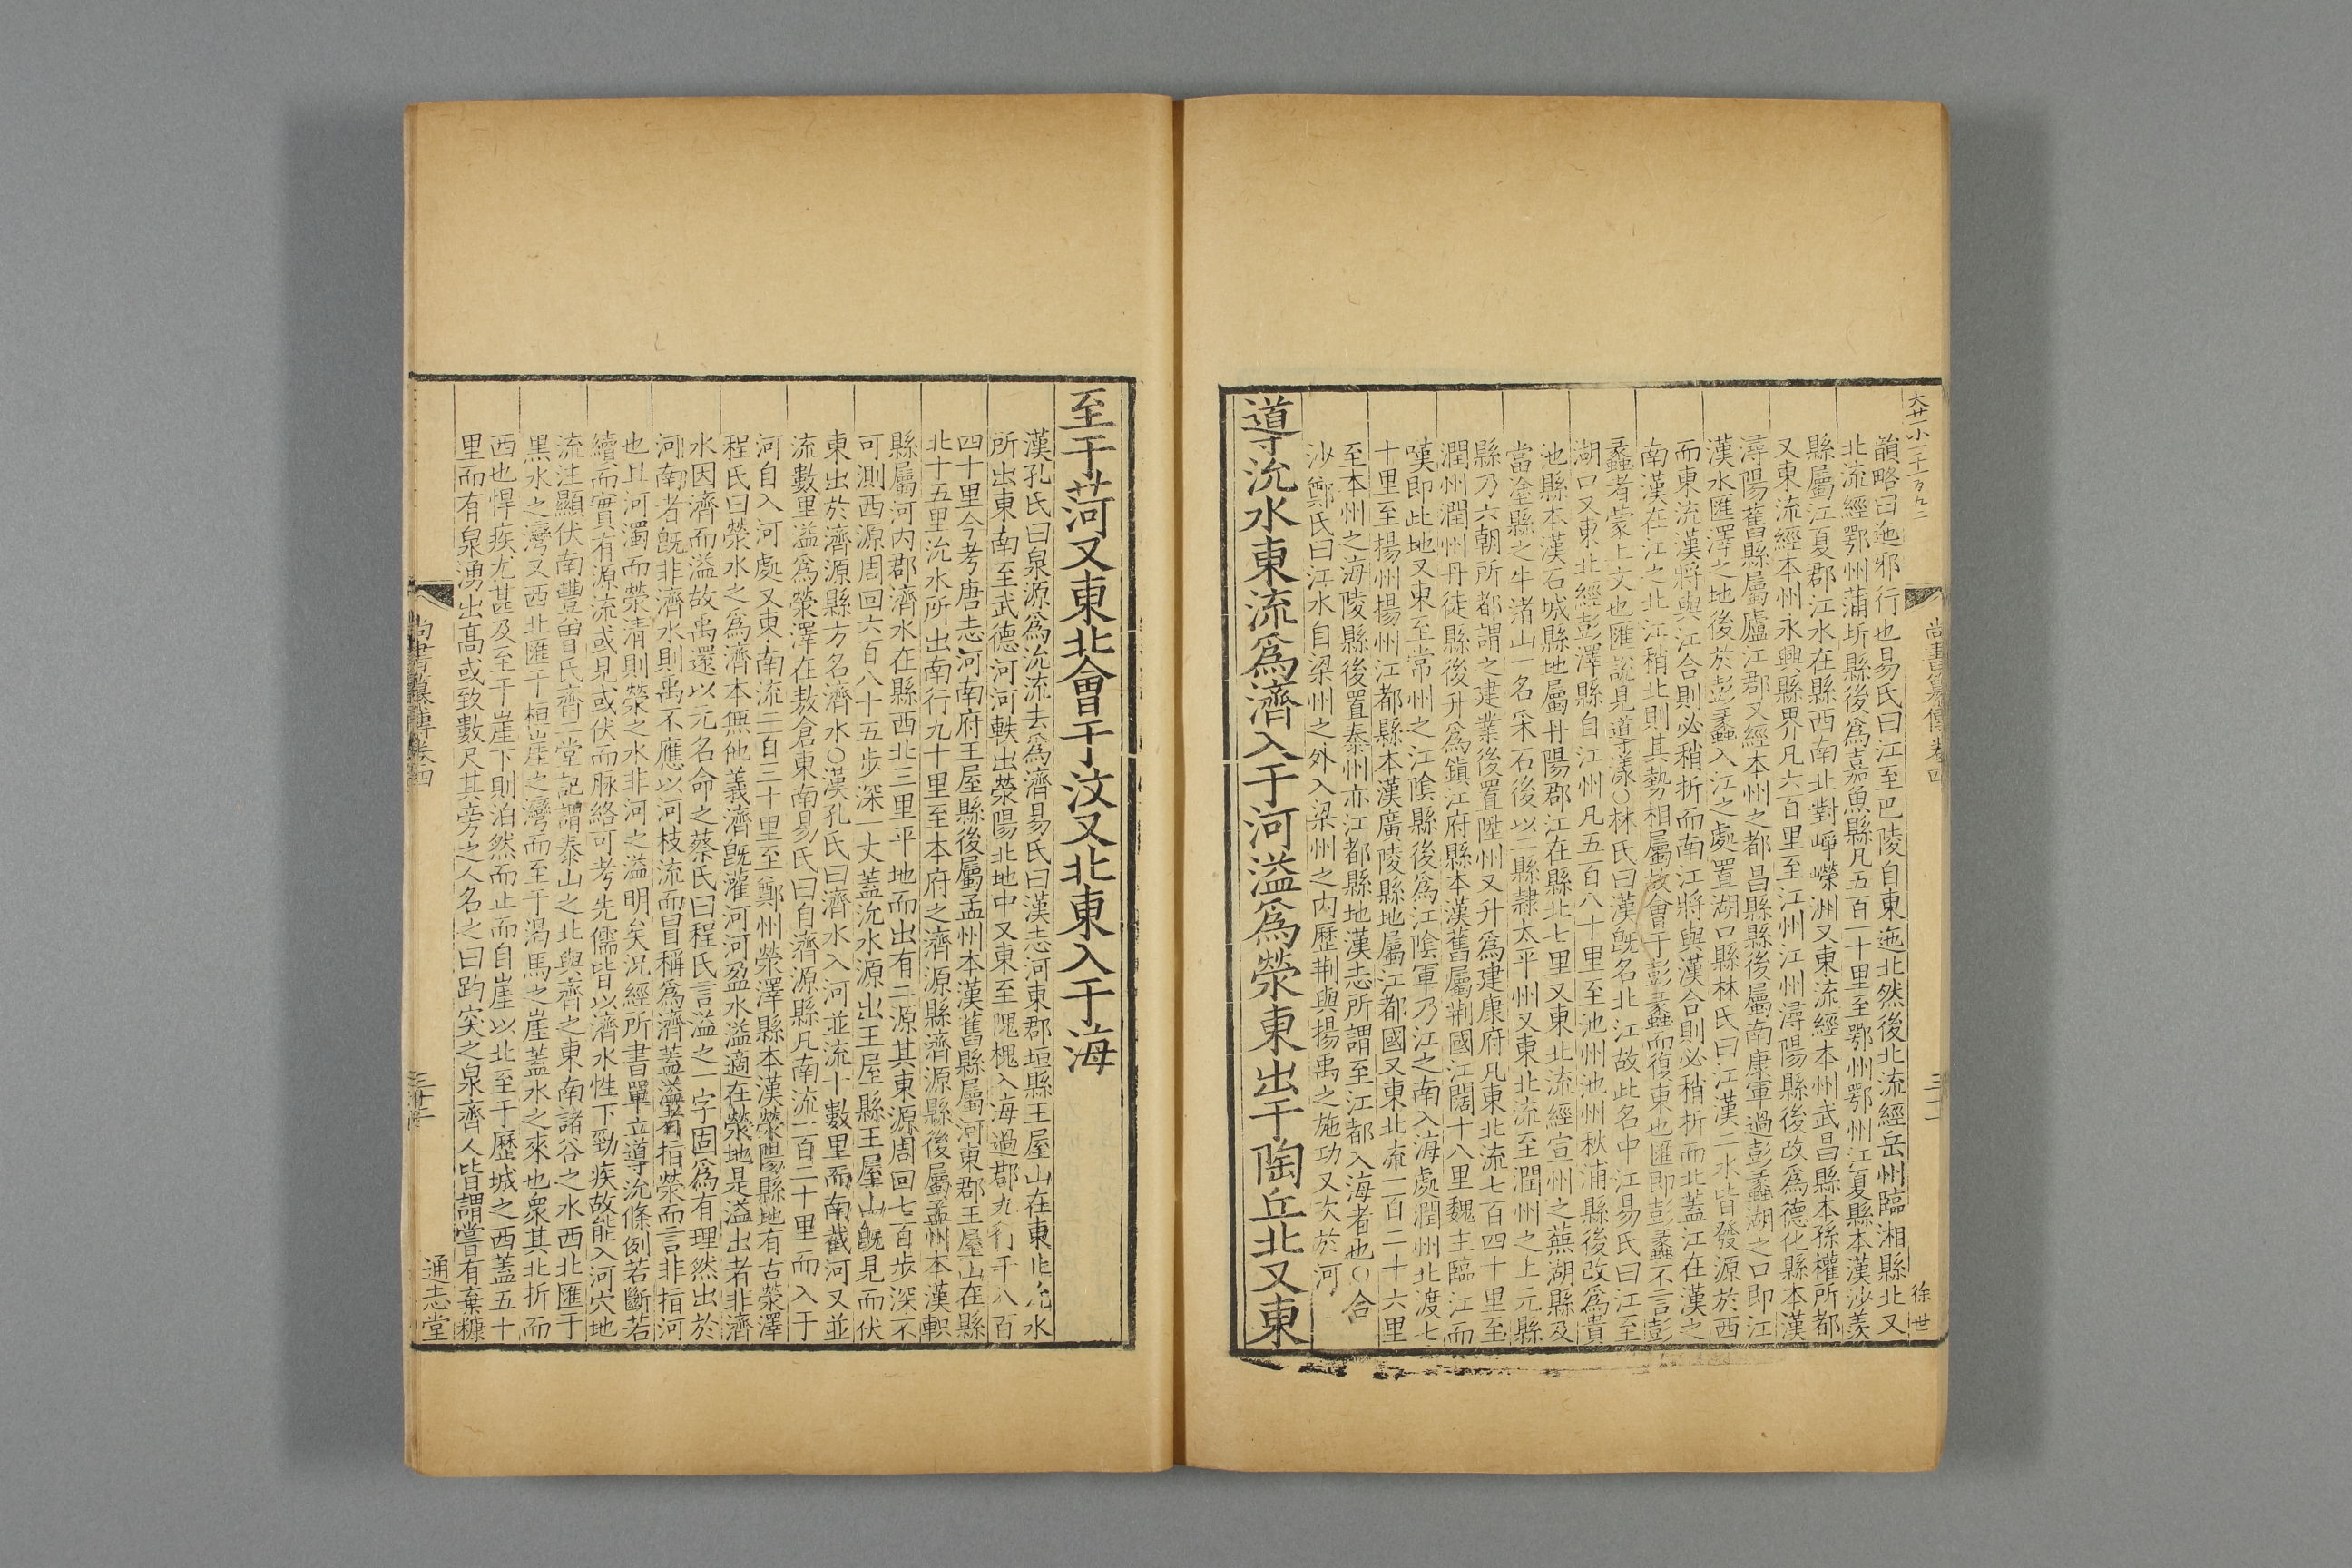 大廿一小一千一百九二
尚書纂傳卷四
三十一
徐世
韻略曰迤邪行也易氏曰江至巴陵自東迤北然後北流經岳州臨湘縣北又
北流經鄂州蒲圻縣後爲嘉魚縣凡五百一十里至鄂州鄂州江夏縣本漢沙羡
縣屬江夏郡江水在縣西南北對崢嶸洲又東流經本州武昌縣本孫權所都
又東流經本州永興縣界凡六百里至江州江州潯陽縣後改爲德化縣本漢
潯陽舊縣屬廬江郡又經本州之都昌縣縣後屬南康軍過彭蠡湖之口即江
漢水匯澤之地後於彭蠡入江之處置湖口縣林氏曰江漢二水皆發源於西
而東流漢將與江合則必稍折而南江將與漢合則必稍折而北蓋江在漢之
南漢在江之北江稍北則其勢相屬故會于彭蠡而復東也匯即彭蠡不言彭
蠡者蒙上文也匯說見導漾○林氏曰漢旣名北江故此名中江易氏曰江至
湖口又東北經彭澤縣自江州凡五百八十里至池州池州秋浦縣後改爲貴
池縣本漢石城縣地屬丹陽郡江在縣北七里又東北流經宣州之蕪湖縣及
當塗縣之牛渚山一名采石後以二縣隷太平州又東北流至潤州之上元縣
縣乃六朝所都謂之建業後置陞州又升爲建康府凡東北流七百四十里至
潤州潤州丹徒縣後升爲鎭江府縣本漢舊屬荆國江闊十八里魏主臨江而
嘆即此地又東至常州之江陰縣後爲江陰軍乃江之南入海處潤州北渡七
十里至揚州揚州江都縣本漢廣陵縣地屬江都國又東北流二百二十六里
至本州之海陵縣後置泰州亦江都縣地漢志所謂至江都入海者也○合
沙鄭氏曰江水自梁州之外入梁州之内歷荆與揚禹之施功又次於河
導沇水東流爲濟入于河溢爲滎東出于陶丘北又東
至于菏又東北會于汶又北東入于海
漢孔氏曰泉源爲沇流去爲濟易氏曰漢志河東郡垣縣王屋山在東北沇水
所出東南至武德河河軼出滎陽北地中又東至隗槐入海過郡九行千八百
四十里今考唐志河南府王屋縣後屬孟州本漢舊縣屬河東郡王屋山在縣
北十五里沇水所出南行九十里至本府之濟源縣濟源縣後屬孟州本漢軹
縣屬河内郡濟水在縣西北三里平地而出有二源其東源周回七百歩深不
可測西源周回六百八十五歩深一丈蓋沇水源出王屋縣王屋山旣見而伏
東出於濟源縣方名濟水○漢孔氏曰濟水入河並流十數里而南截河又並
流數里溢爲滎澤在敖倉東南易氏曰自濟源縣凡南流二百二十里而入于
河自入河處又東南流三百三十里至鄭州滎澤縣本漢滎陽縣地有古滎澤
程氏曰滎水之爲濟本無他義濟旣灌河河盈水溢適在滎地是溢出者非濟
水因濟而溢故禹還以元名命之蔡氏曰程氏言溢之一字固爲有理然出於
河南者旣非濟水則禹不應以河枝流而冒稱爲濟蓋溢者指滎而言非指河
也且河濁而滎淸則滎之水非河之溢明矣况經所書單立導沇條例若斷若
續而實有源流或見或伏而脉絡可考先儒皆以濟水性下勁疾故能入河穴地
流注顯伏南豐曾氏齊二堂記謂泰山之北與齊之東南諸谷之水西北匯于
黑水之灣又西北匯于栢崖之灣而至于渴馬之崖蓋水之來也衆其北折而
西也悍疾尤甚及至于崖下則泊然而止而自崖以北至于歷城之西蓋五十
里而有泉湧出高或致數尺其旁之人名之曰趵突之泉齊人皆謂嘗有棄糠
尚書纂傳卷四
通志堂